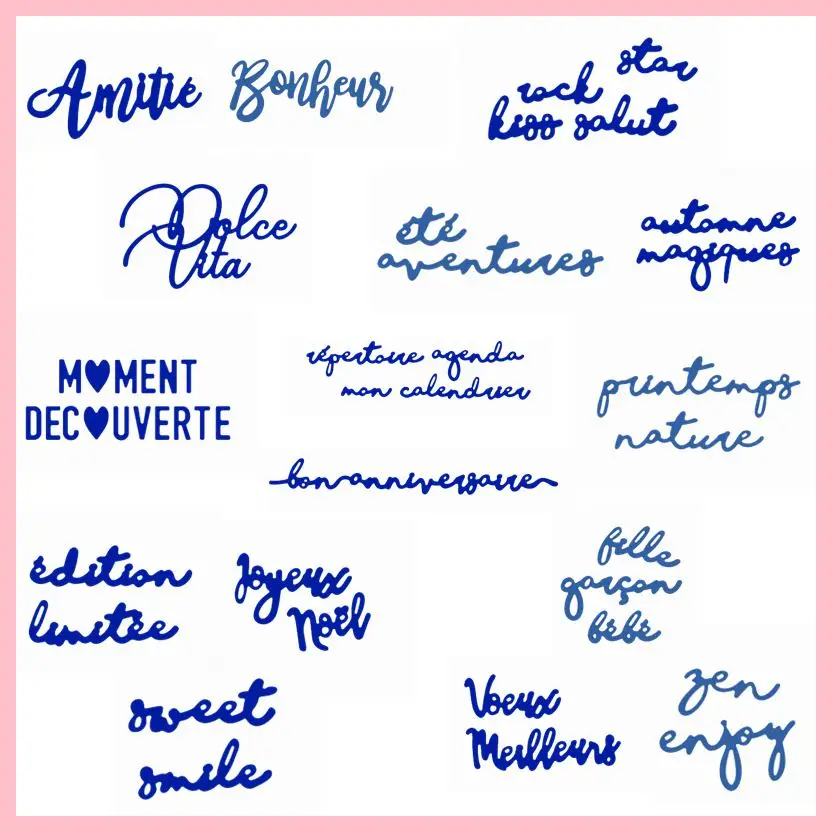 Amitié
Bonheur
star
rock
kiss salut
Dolce
Vita
été
aventures
automne
magiques
M♥MENT
DEC♥UVERTE
répertoire agenda
mon calendrier
printemps
nature
bon anniversaire
édition
limitée
Joyeux
Noël
fille
garçon
bébé
sweet
smile
Voeux
Meilleurs
zen
enjoy